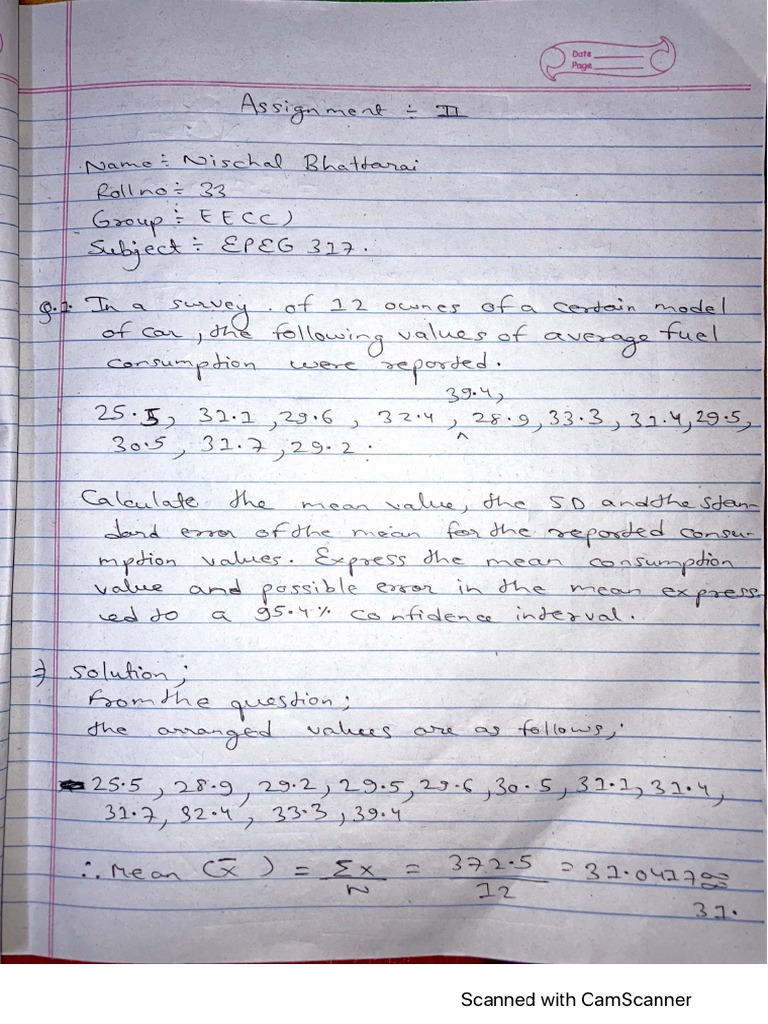 Date
Page
Assignment ÷ II
Name ÷ Nischal Bhattarai
Roll no ÷ 33
Group ÷ EE(C)
Subject ÷ EPEG 317.
Q.1. In a survey of 12 ownes of a certain model
of car, the following values of average fuel
consumption were reported.
39.4,
25.5, 31.1, 29.6, 32.4, ^ 28.9, 33.3, 31.4, 29.5,
30.5, 31.7, 29.2.
Calculate the mean value, the SD and the stan-
dard error of the mean for the reported consu-
mption values. Express the mean consumption
value and possible error in the mean express
ed to a 95.4% confidence interval.
⇒ Solution;
from the question;
the arranged values are as follows;
25.5, 28.9, 29.2, 29.5, 29.6, 30.5, 31.1, 31.4,
31.7, 32.4, 33.3, 39.4
∴ Mean (x̄) = Σx/N = 372.5/12 = 31.0417 ≈
31.
Scanned with CamScanner